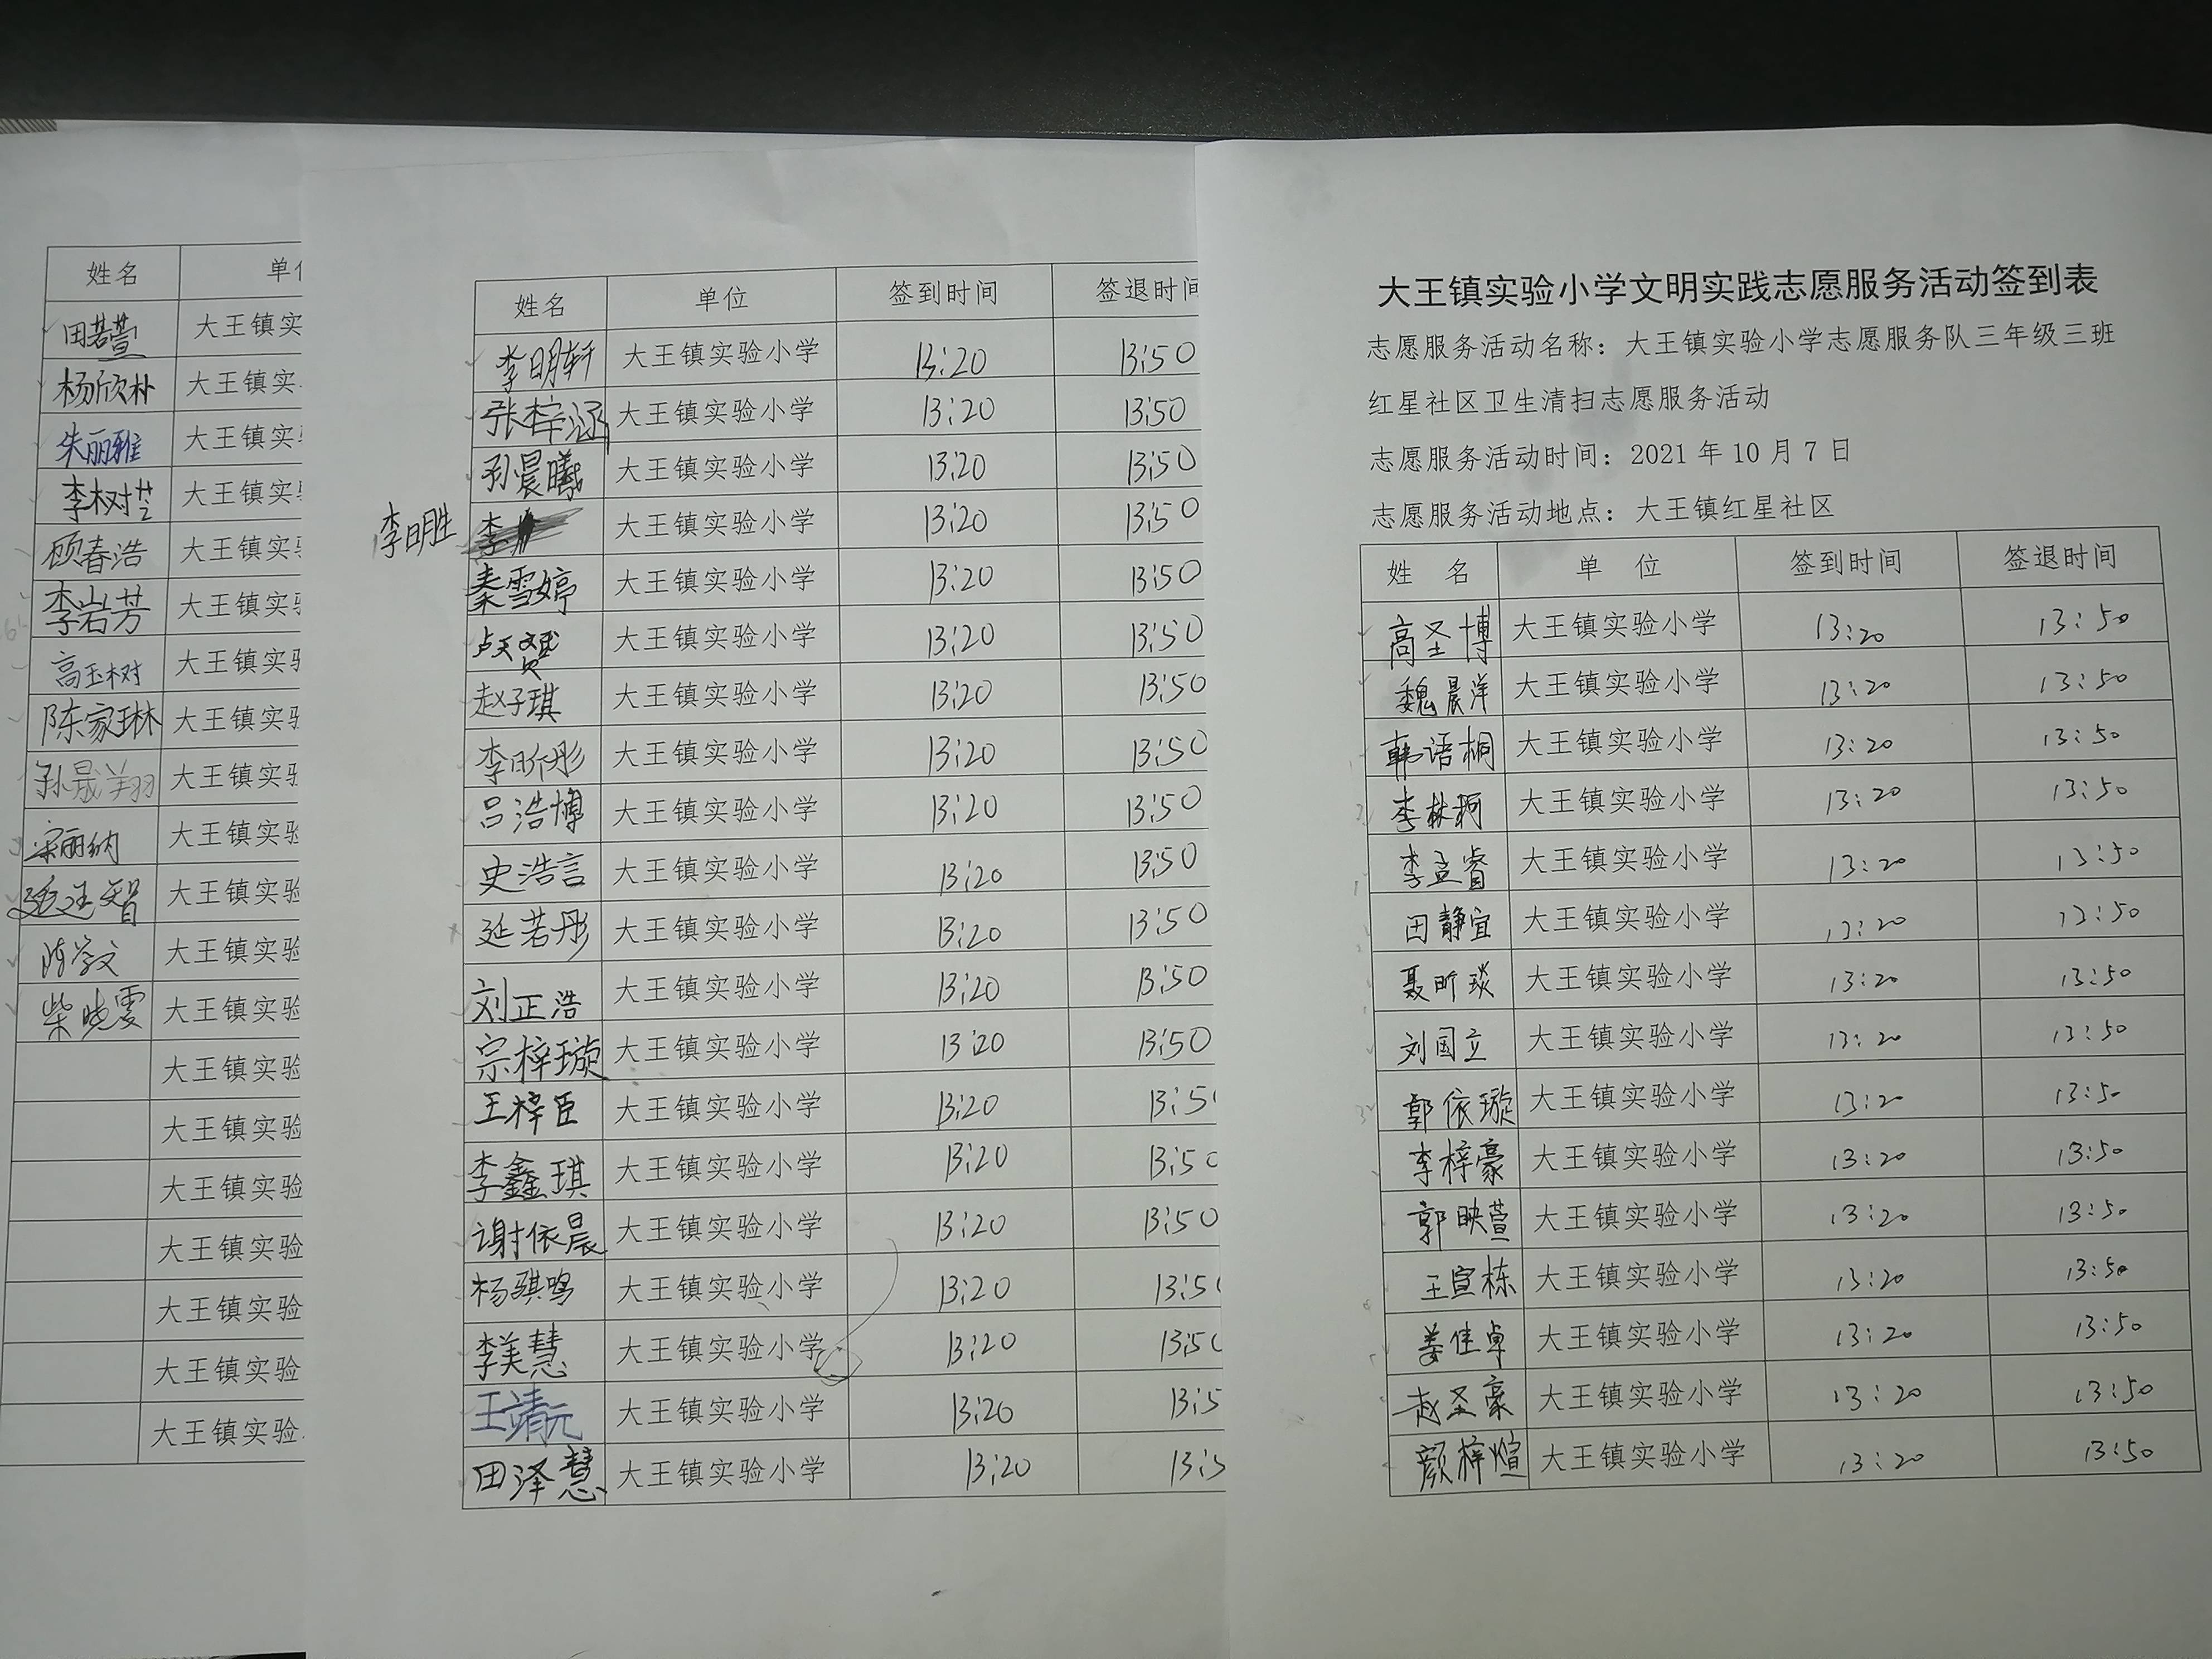 姓名 单
田若萱 大王镇实
杨欣朴 大王镇实
朱丽雅 大王镇实
李树 大王镇实
顾春浩 大王镇实
李岩芳 大王镇实
高玉树 大王镇实
陈家琳 大王镇实验
孙晟翔 大王镇实验
宋丽纳 大王镇实验
大王镇实验
陈学文 大王镇实验
柴晓雯 大王镇实验
大王镇实验
大王镇实验
大王镇实验
大王镇实验
大王镇实验
大王镇实验
大王镇实验
姓名 单位 签到时间 签退时间
李明轩 大王镇实验小学 13:20 13:50
张梓涵 大王镇实验小学 13:20 13:50
孙晨曦 大王镇实验小学 13:20 13:50
李明胜 李 大王镇实验小学 13:20 13:50
秦雪婷 大王镇实验小学 13:20 13:50
卢天 大王镇实验小学 13:20 13:50
赵子琪 大王镇实验小学 13:20 13:50
李昕彤 大王镇实验小学 13:20 13:50
吕浩博 大王镇实验小学 13:20 13:50
史浩言 大王镇实验小学 13:20 13:50
延若彤 大王镇实验小学 13:20 13:50
刘正浩 大王镇实验小学 13:20 13:50
宗梓璇 大王镇实验小学 13:20 13:50
王梓臣 大王镇实验小学 13:20 13:5
李鑫琪 大王镇实验小学 13:20 13:50
谢依晨 大王镇实验小学 13:20 13:50
杨骐鸣 大王镇实验小学 13:20 13:50
李美慧 大王镇实验小学 13:20 13:50
王靖元 大王镇实验小学 13:20 13:5
田泽慧 大王镇实验小学 13:20 13:5
大王镇实验小学文明实践志愿服务活动签到表
志愿服务活动名称：大王镇实验小学志愿服务队三年级三班
红星社区卫生清扫志愿服务活动
志愿服务活动时间：2021 年 10 月 7 日
志愿服务活动地点：大王镇红星社区
姓 名 单 位 签到时间 签退时间
高圣博 大王镇实验小学 13:20 13:50
魏晨洋 大王镇实验小学 13:20 13:50
韩语桐 大王镇实验小学 13:20 13:50
李林珂 大王镇实验小学 13:20 13:50
李孟睿 大王镇实验小学 13:20 13:50
田静宜 大王镇实验小学 13:20 13:50
聂昕琰 大王镇实验小学 13:20 13:50
刘国立 大王镇实验小学 13:20 13:50
郭依璇 大王镇实验小学 13:20 13:50
李梓豪 大王镇实验小学 13:20 13:50
郭映萱 大王镇实验小学 13:20 13:50
王宣栋 大王镇实验小学 13:20 13:50
姜佳卓 大王镇实验小学 13:20 13:50
赵圣豪 大王镇实验小学 13:20 13:50
颜梓煊 大王镇实验小学 13:20 13:50